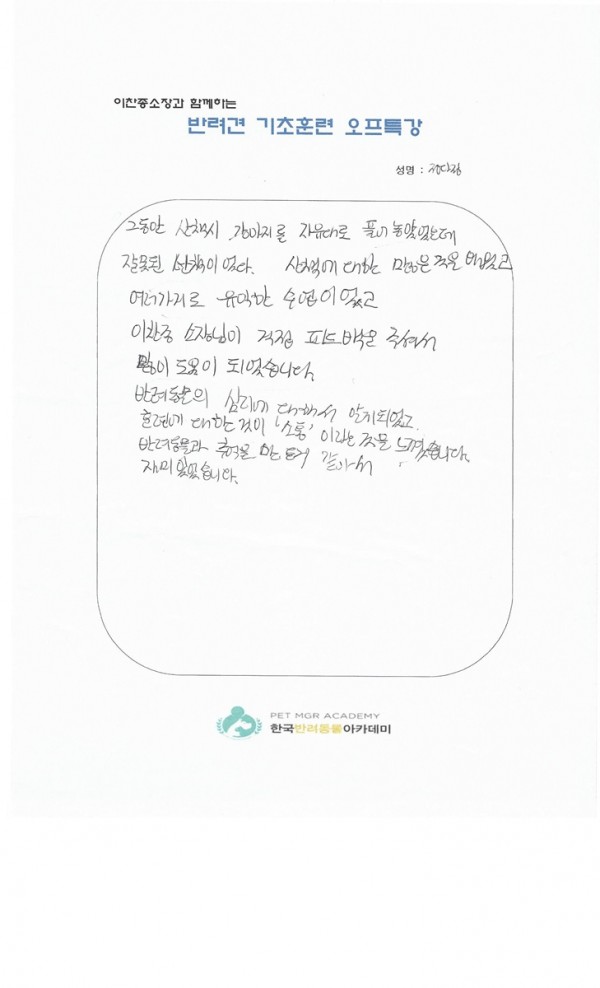 이찬종소장과 함께하는
반려견 기초훈련 오프특강
성명 :
그동안 산책시 강아지를 자유대로 풀어 놓았었는데
잘못된 산책이었다. 산책에 대한 많은 것을 배웠고
여러가지로 유익한 수업이었고
이찬종 소장님이 직접 피드백을 주셔서
많이 도움이 되었습니다.
반려동물의 심리에 대해서 알게되었고.
훈련에 대한 것이 '소통' 이라는 것을 느꼈습니다.
반려동물과 추억을 만든거 같아서
재미있었습니다.
PET MGR ACADEMY
한국반려동물아카데미